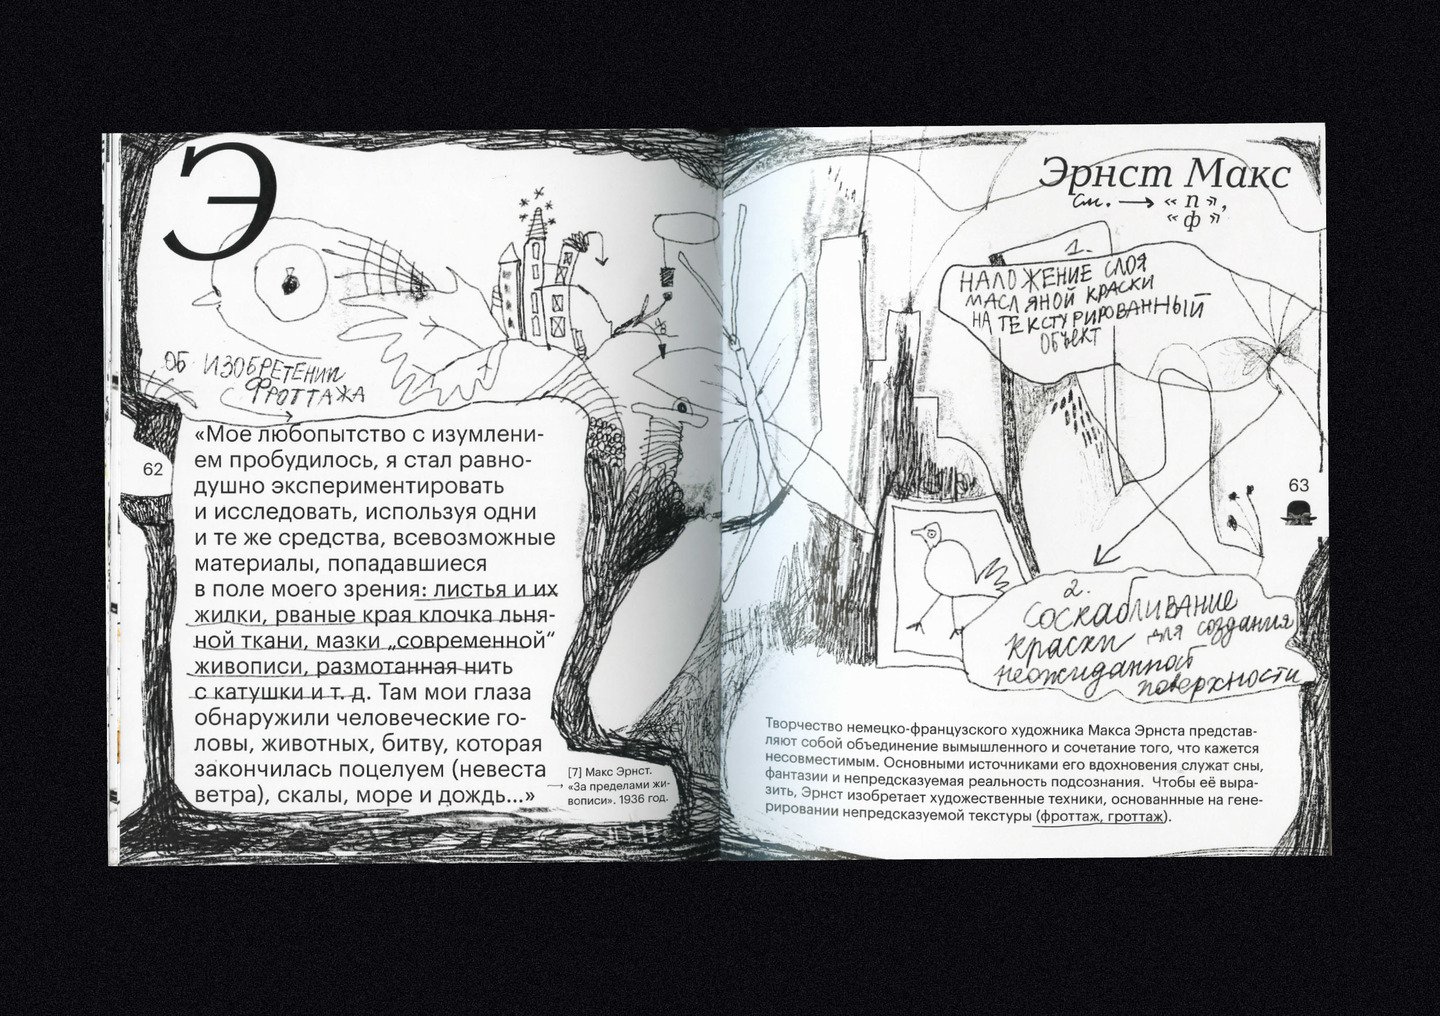 Э
ОБ ИЗОБРЕТЕНИИ
ФРОТТАЖА
62
«Мое любопытство с изумлени-
ем пробудилось, я стал равно-
душно экспериментировать
и исследовать, используя одни
и те же средства, всевозможные
материалы, попадавшиеся
в поле моего зрения: листья и их
жилки, рваные края клочка льня-
ной ткани, мазки „современной“
живописи, размотанная нить
с катушки и т. д. Там мои глаза
обнаружили человеческие го-
ловы, животных, битву, которая
закончилась поцелуем (невеста
ветра), скалы, море и дождь...»
[7] Макс Эрнст.
«За пределами жи-
вописи». 1936 год.
Эрнст Макс
см. → « п »,
« ф »
1.
НАЛОЖЕНИЕ СЛОЯ
МАСЛЯНОЙ КРАСКИ
НА ТЕКСТУРИРОВАННЫЙ
ОБЪЕКТ
63
2.
СОСКАБЛИВАНИЕ
КРАСКИ для создания
неожиданной
поверхности
Творчество немецко-французского художника Макса Эрнста представ-
ляют собой объединение вымышленного и сочетание того, что кажется
несовместимым. Основными источниками его вдохновения служат сны,
фантазии и непредсказуемая реальность подсознания. Чтобы её выра-
зить, Эрнст изобретает художественные техники, основаннные на гене-
рировании непредсказуемой текстуры (фроттаж, гроттаж).